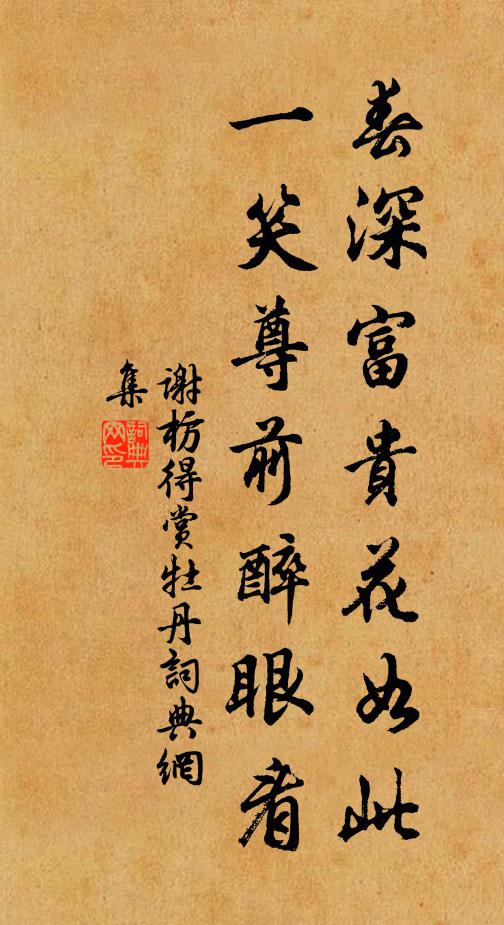 春深富貴花如此
一笑尊前醉眼看
謝枋得賞牡丹詞典網
集
詞典
网印